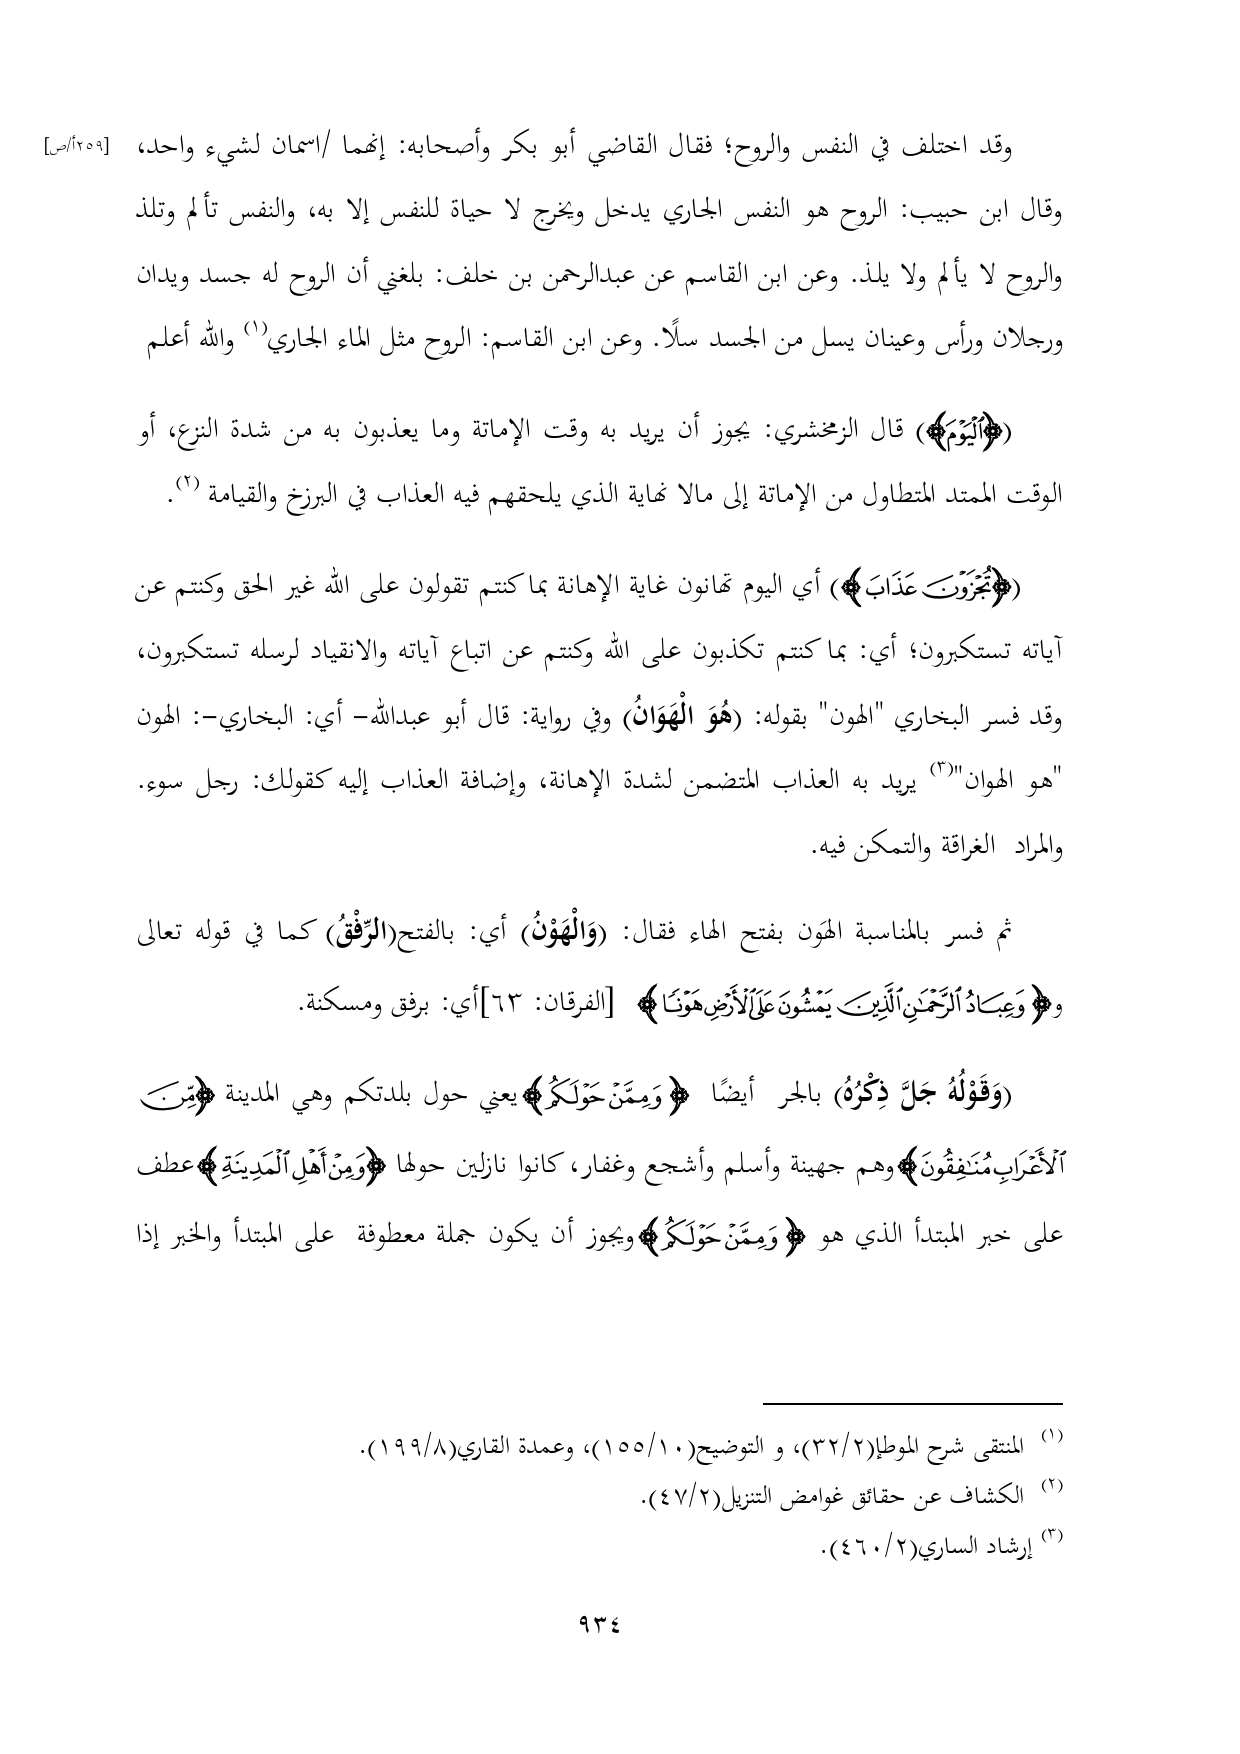 وقد اختلف في النفس والروح؛ فقال القاضي أبو بكر وأصحابه: إنهما /اسمان لشيء واحد، [٢٥٩أ/ص]
وقال ابن حبيب: الروح هو النفس الجاري يدخل ويخرج لا حياة للنفس إلا به، والنفس تألم وتلذ
والروح لا يألم ولا يلذ. وعن ابن القاسم عن عبدالرحمن بن خلف: بلغني أن الروح له جسد ويدان
ورجلان ورأس وعينان يسل من الجسد سلًا. وعن ابن القاسم: الروح مثل الماء الجاري(١) والله أعلم
(﴿ٱلۡيَوۡمَ﴾) قال الزمخشري: يجوز أن يريد به وقت الإماتة وما يعذبون به من شدة النزع، أو
الوقت الممتد المتطاول من الإماتة إلى مالا نهاية الذي يلحقهم فيه العذاب في البرزخ والقيامة (٢).
(﴿تُجۡزَوۡنَ عَذَابَ﴾) أي اليوم تهانون غاية الإهانة بما كنتم تقولون على الله غير الحق وكنتم عن
آياته تستكبرون؛ أي: بما كنتم تكذبون على الله وكنتم عن اتباع آياته والانقياد لرسله تستكبرون،
وقد فسر البخاري "الهون" بقوله: (هُوَ الْهَوَانُ) وفي رواية: قال أبو عبدالله– أي: البخاري–: الهون
"هو الهوان"(٣) يريد به العذاب المتضمن لشدة الإهانة، وإضافة العذاب إليه كقولك: رجل سوء.
والمراد الغراقة والتمكن فيه.
ثم فسر بالمناسبة الهَون بفتح الهاء فقال: (وَالْهَوْنُ) أي: بالفتح(الرِّفْقُ) كما في قوله تعالى
و﴿وَعِبَادُ ٱلرَّحۡمَٰنِ ٱلَّذِينَ يَمۡشُونَ عَلَى ٱلۡأَرۡضِ هَوۡنٗا﴾ [الفرقان: ٦٣]أي: برفق ومسكنة.
(وَقَوْلُهُ جَلَّ ذِكْرُهُ) بالجر أيضًا ﴿وَمِمَّنۡ حَوۡلَكُم﴾يعني حول بلدتكم وهي المدينة ﴿مِّنَ
ٱلۡأَعۡرَابِ مُنَٰفِقُونَ﴾وهم جهينة وأسلم وأشجع وغفار، كانوا نازلين حولها ﴿وَمِنۡ أَهۡلِ ٱلۡمَدِينَةِ﴾عطف
على خبر المبتدأ الذي هو ﴿وَمِمَّنۡ حَوۡلَكُم﴾ويجوز أن يكون جملة معطوفة على المبتدأ والخبر إذا
(١) المنتقى شرح الموطإ(٣٢/٢)، و التوضيح(١٥٥/١٠)، وعمدة القاري(١٩٩/٨).
(٢) الكشاف عن حقائق غوامض التنزيل(٤٧/٢).
(٣) إرشاد الساري(٤٦٠/٢).
٩٣٤